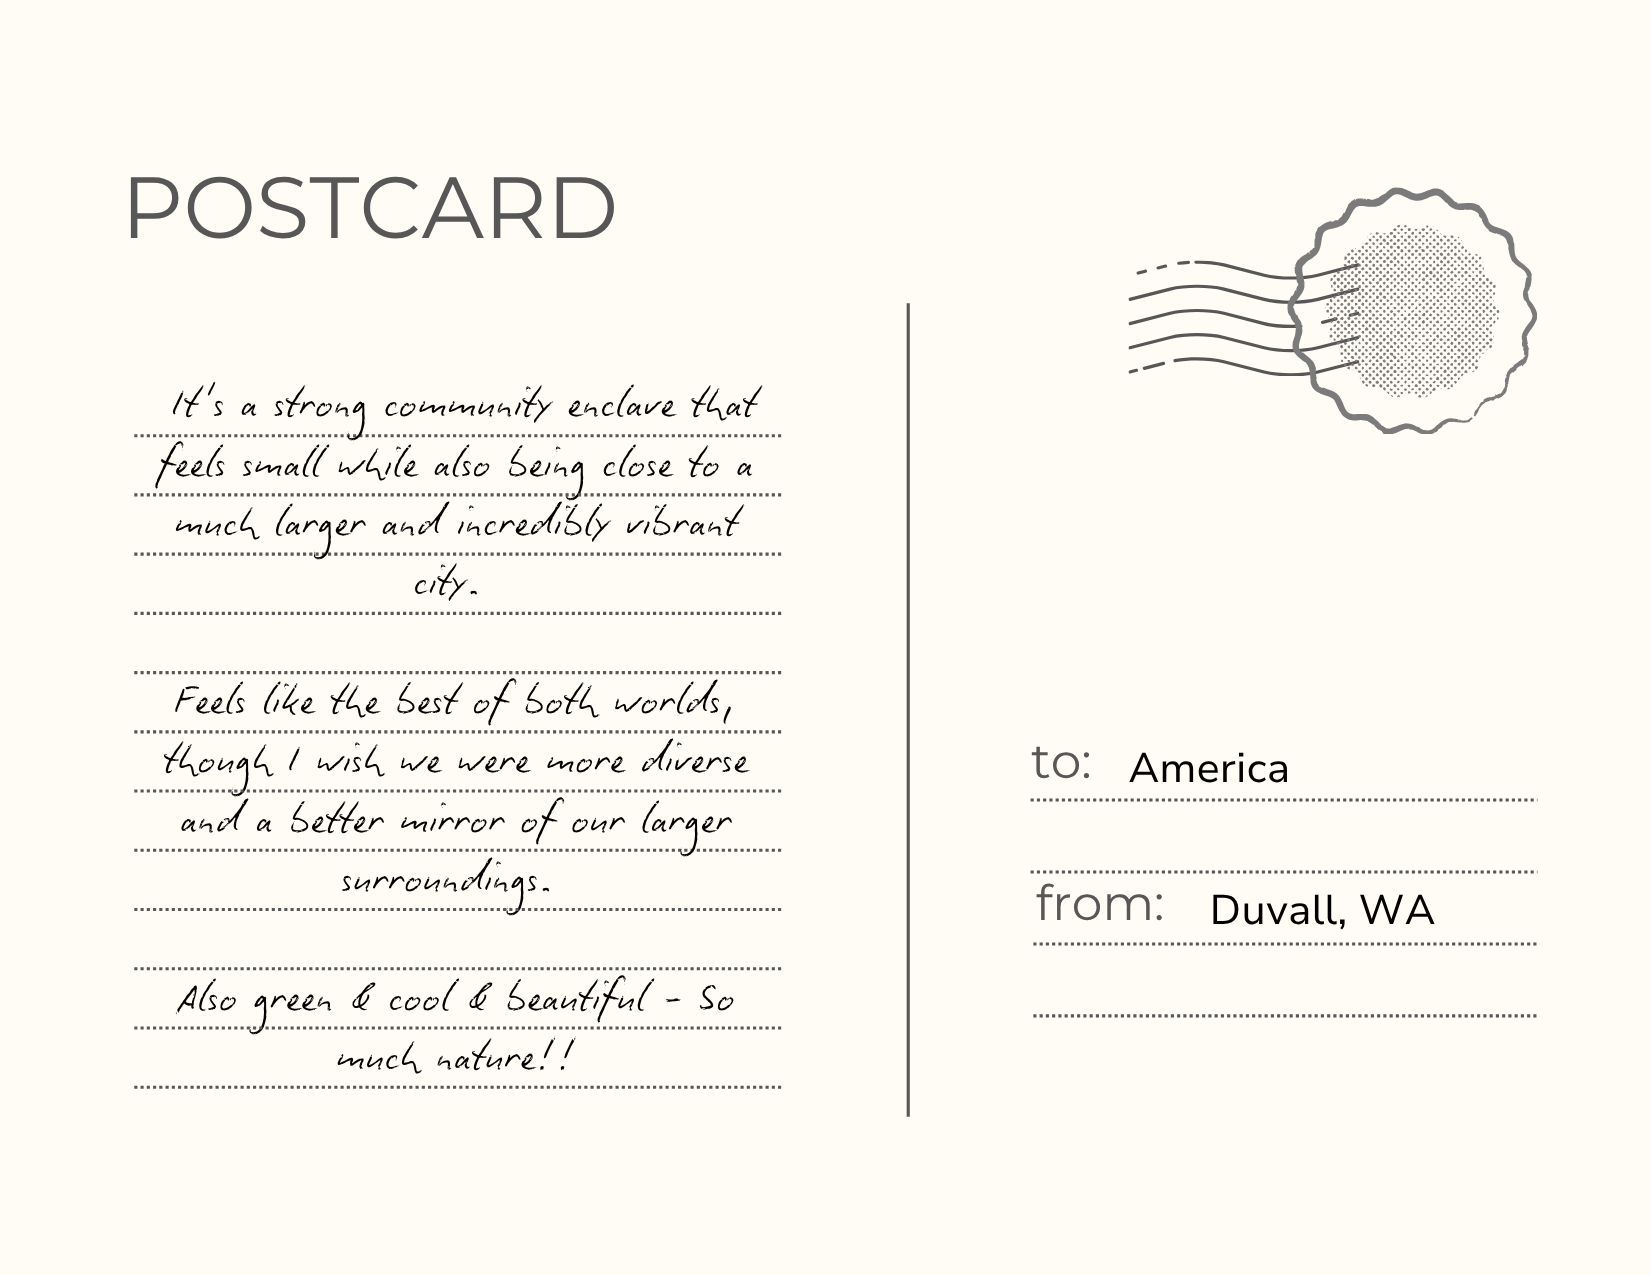 POSTCARD
It's a strong community enclave that
feels small while also being close to a
much larger and incredibly vibrant
city.
Feels like the best of both worlds,
though I wish we were more diverse
and a better mirror of our larger
surroundings.
Also green & cool & beautiful - So
much nature!!
to: America
from: Duvall, WA